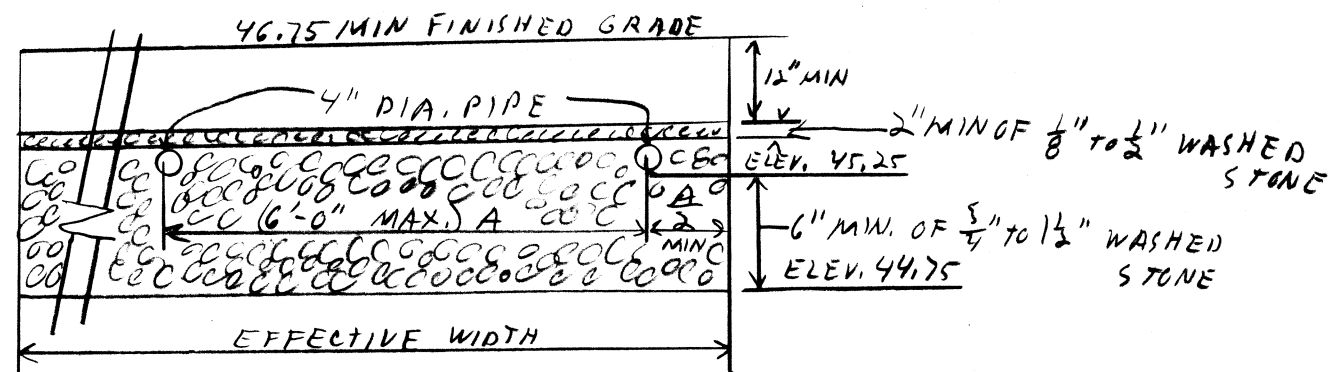 46.75 MIN FINISHED GRADE
12" MIN
4" DIA. PIPE
2" MIN OF 1/8" TO 1/2" WASHED
STONE
ELEV. 45.25
(6'-0" MAX.) A
A/2
MIN
6" MIN. OF 3/4" TO 1 1/2" WASHED
STONE
ELEV. 44.75
EFFECTIVE WIDTH